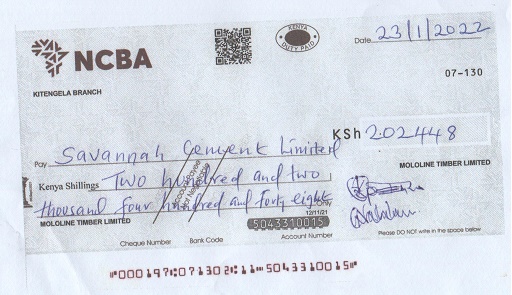 NCBA
KENYA
DUTY PAID
Date 23/1/2022
07-130
KITENGELA BRANCH
KSh 202448
Pay Savannah Cement Limited
MOLOLINE TIMBER LIMITED
Kenya Shillings Two hundred and two
thousand four hundred and forty eight only
MOLOLINE TIMBER LIMITED
12/11/21
5043310015
Cheque Number Bank Code Account Number
Please DO NOT write in the space below
"000197:07130 2:11" 5043310015"